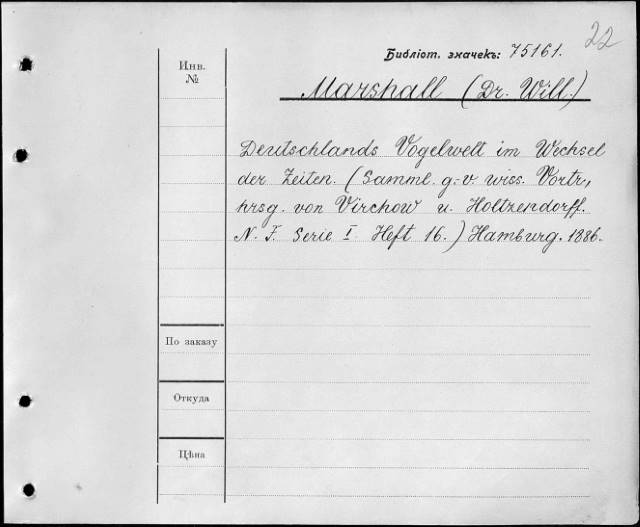 22
Библіот. значекъ: 75161.
Инв.
№
Marshall (Dr. Will.)
Deutschlands Vogelwelt im Wechsel
der Zeiten. (Samml. g.-v. wiss. Vortr.,
hrsg. von Virchow u. Holtzendorff.
N. F. Serie I Heft 16.) Hamburg. 1886.
По заказу
Откуда
Цѣна